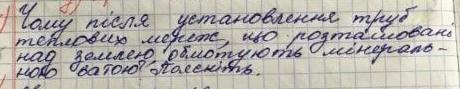 Чому після установлення труб
теплових мереж, що розташовані
над землею, обмотують мінераль-
ною ватою? Поясніть.